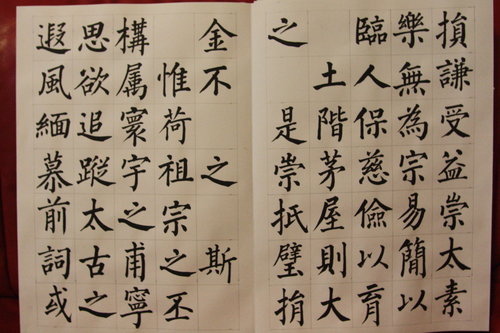 損謙受益崇太素
樂無為宗易簡以
臨人保慈儉以育
土階茅屋則大
之 是崇抵璧捐
金不 之 斯
惟荷祖宗之丕
構属寰宇之甫寧
思欲追蹤太古之
遐風緬慕前詞或